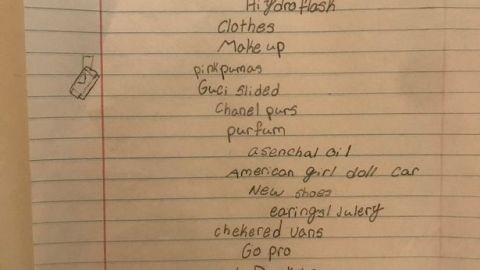 Hiydroflask
Clothes
Make up
pink pumas
Guci slided
Chanel purs
purfum
asenchal oil
American girl doll car
New shoes
earings/Julery
chekered vans
Go pro